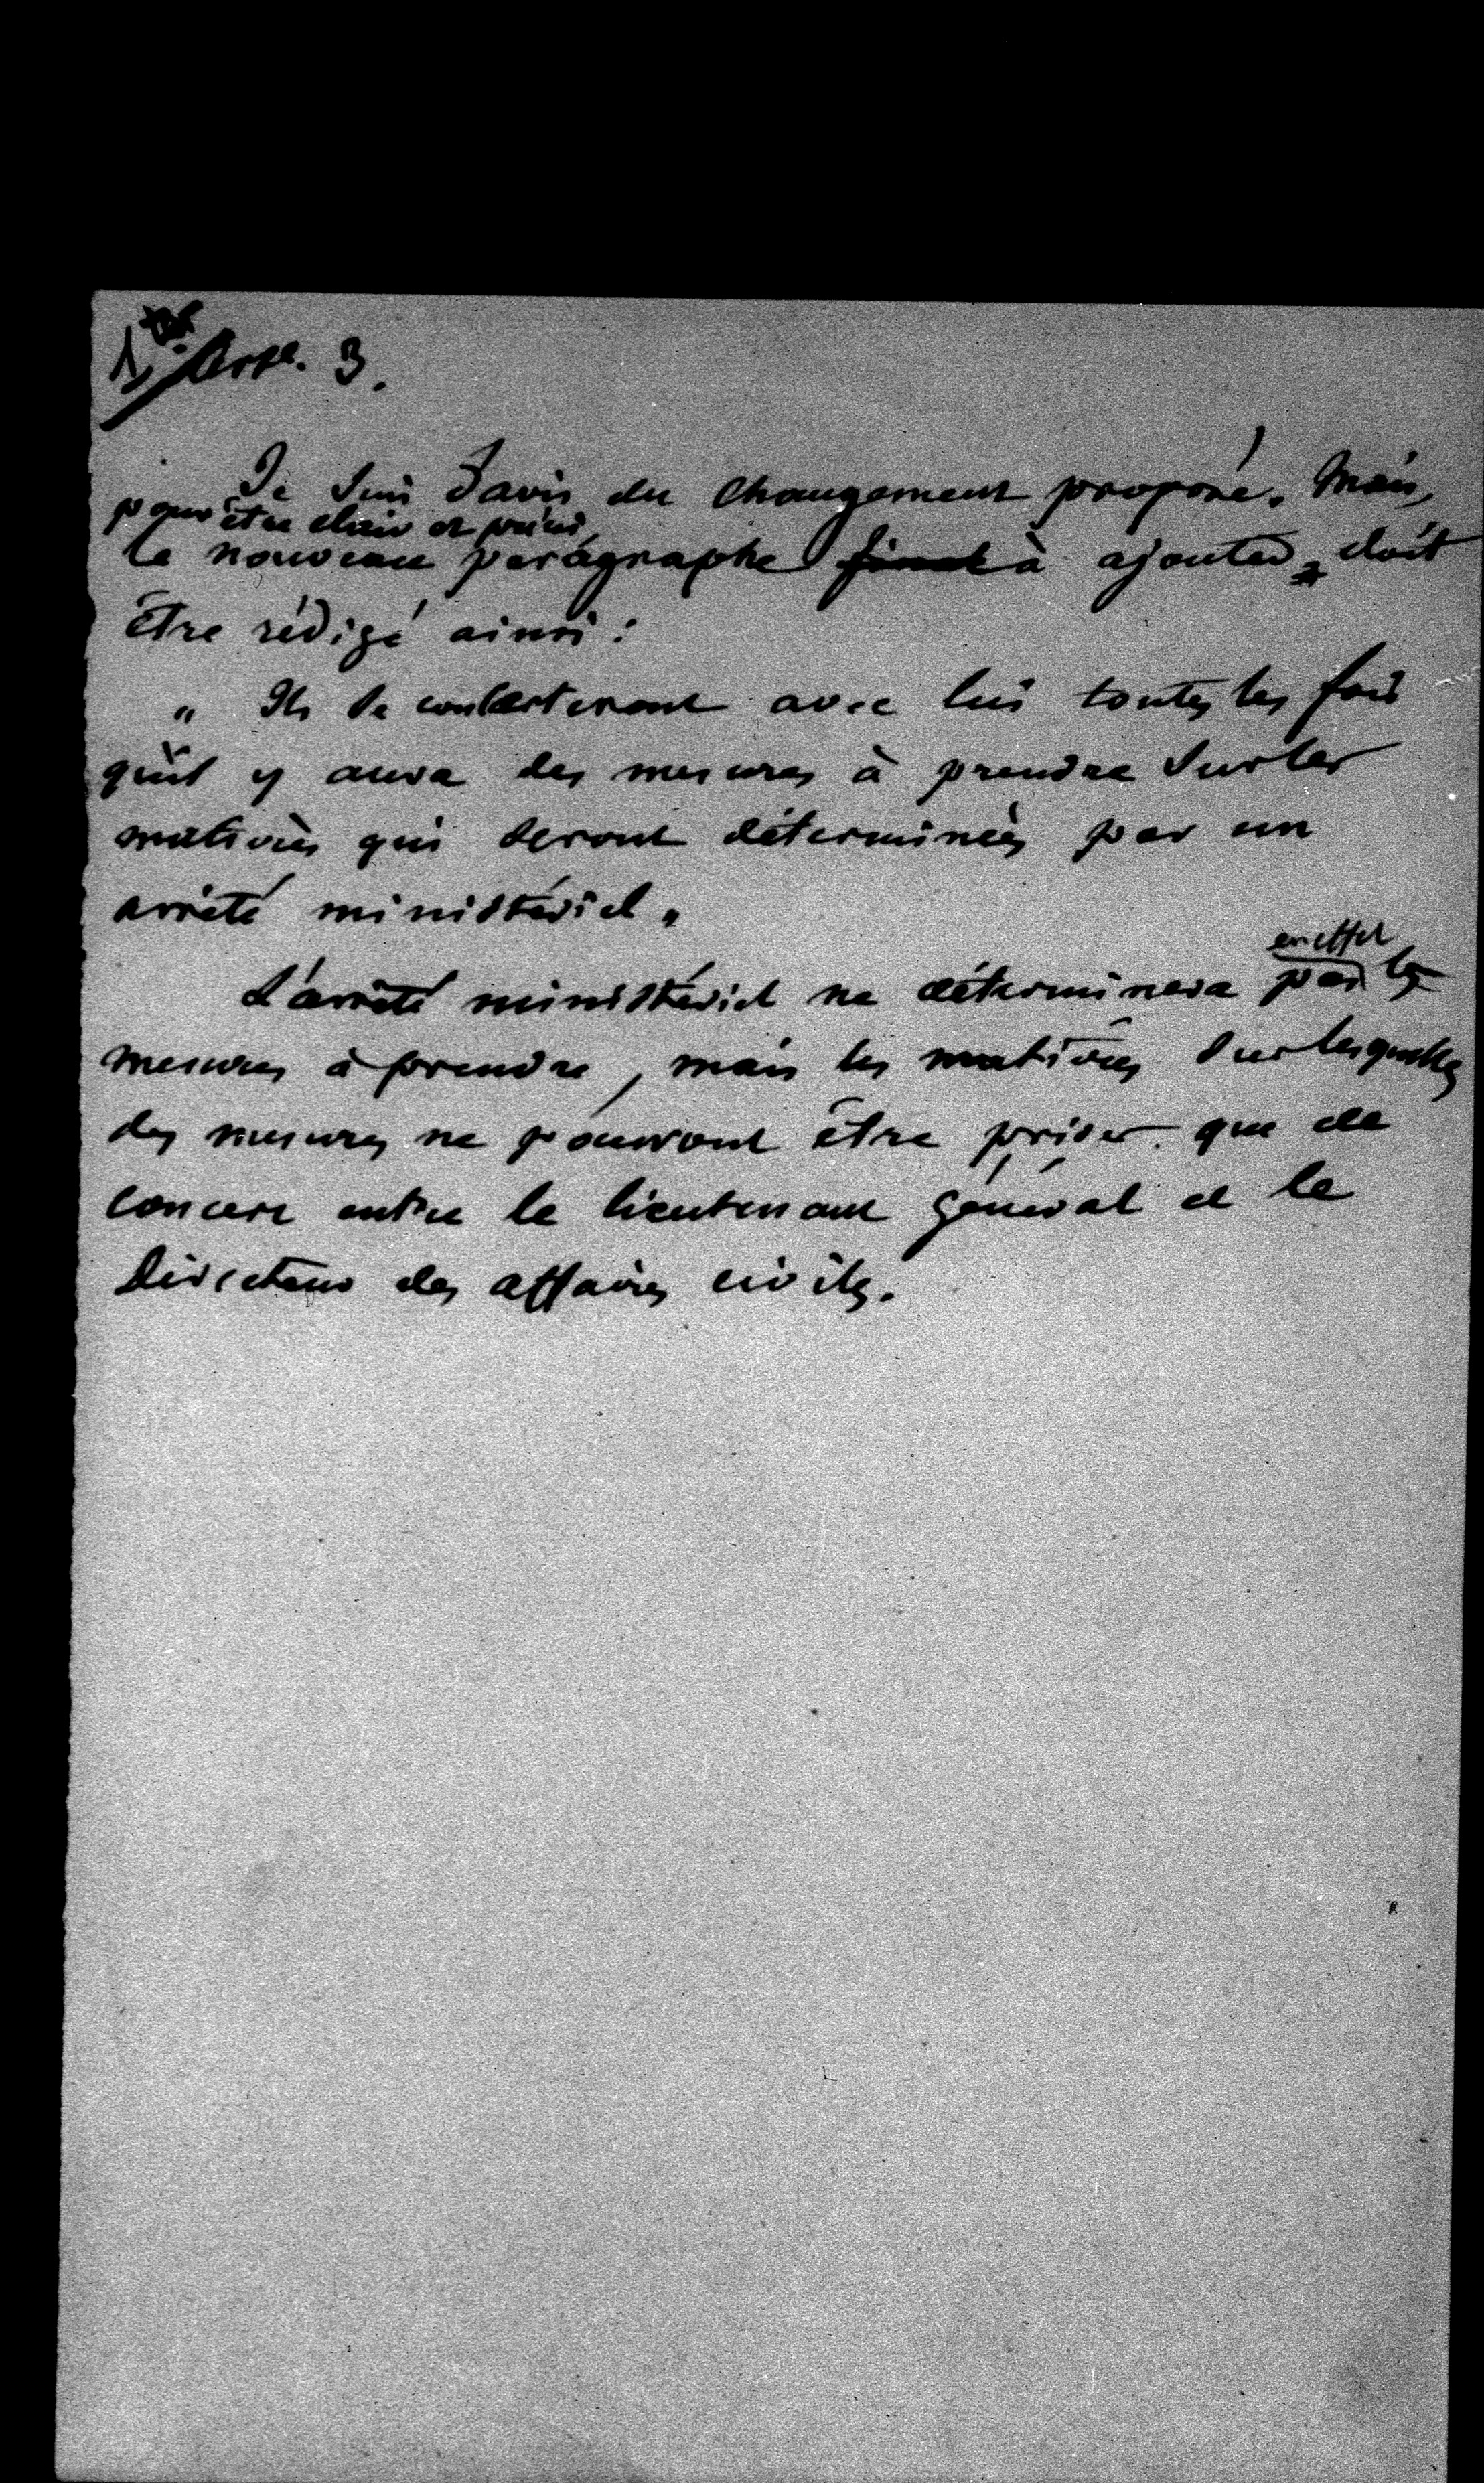 1. Art. 3.
Je suis d'avis du changement proposé. Mais,
pour être clair et précis,
le nouveau paragraphe final à ajouter doit
être rédigé ainsi :
" Ils se concerteront avec lui toutes les fois
qu'il y aura des mesures à prendre sur les
matières qui seront déterminées par un
arrêté ministériel "
en effet
L'arrêté ministériel ne déterminera pas les
mesures à prendre, mais les matières sur lesquelles
des mesures ne pourront être prises que de
concert entre le lieutenant général et le
Directeur des affaires civiles.